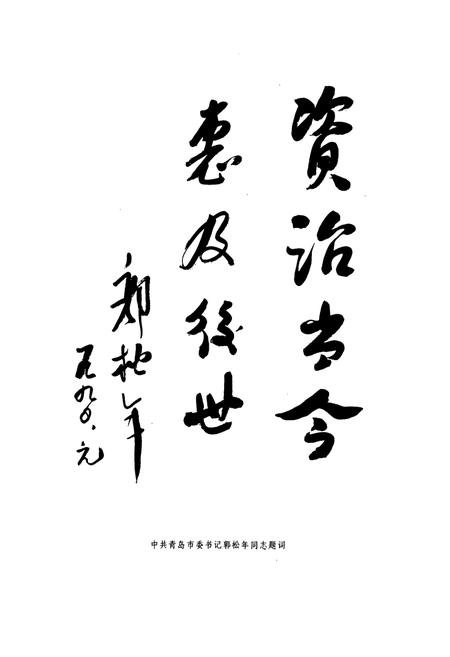 資治当今
惠及後世
郭松年
一九九〇.元
中共青岛市委书记郭松年同志题词